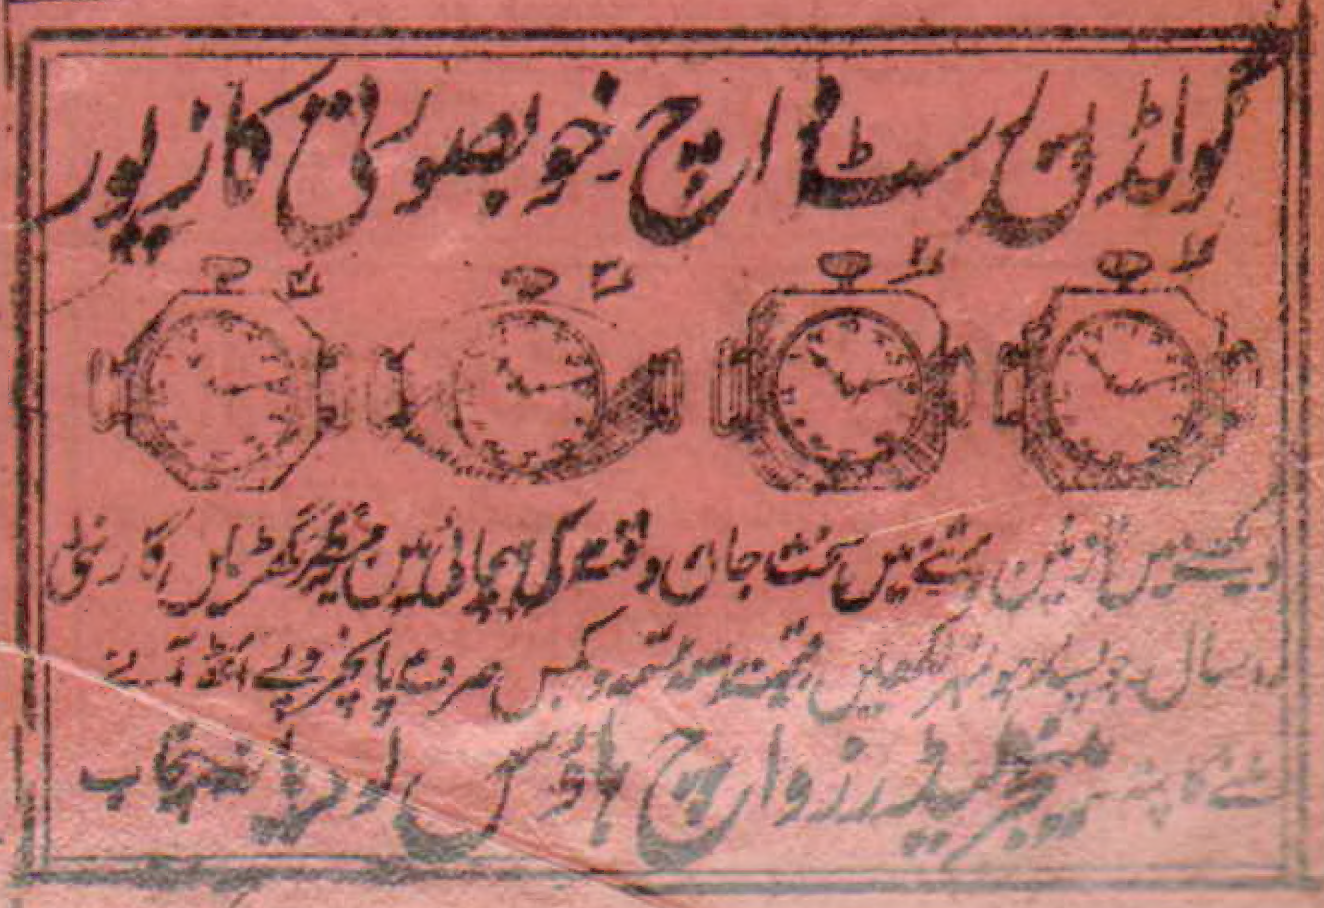 گولڈن رسٹ واچ۔ خوبصورتی کا زیور
۱ ۲ ۳ ۴
دیکھنے میں نازنین برتنے میں سخت جان وقت کی سچائی میں بےنظیر گھڑیاں گارنٹی
سال جو پسند ہو نمبر لکھیں قیمت معہ تسمہ و بکس صرف پانچروپے آٹھ آنے
ملنے کا پتہ۔ منیجر لیڈرز واچ ہاؤس لودیانہ پنجاب